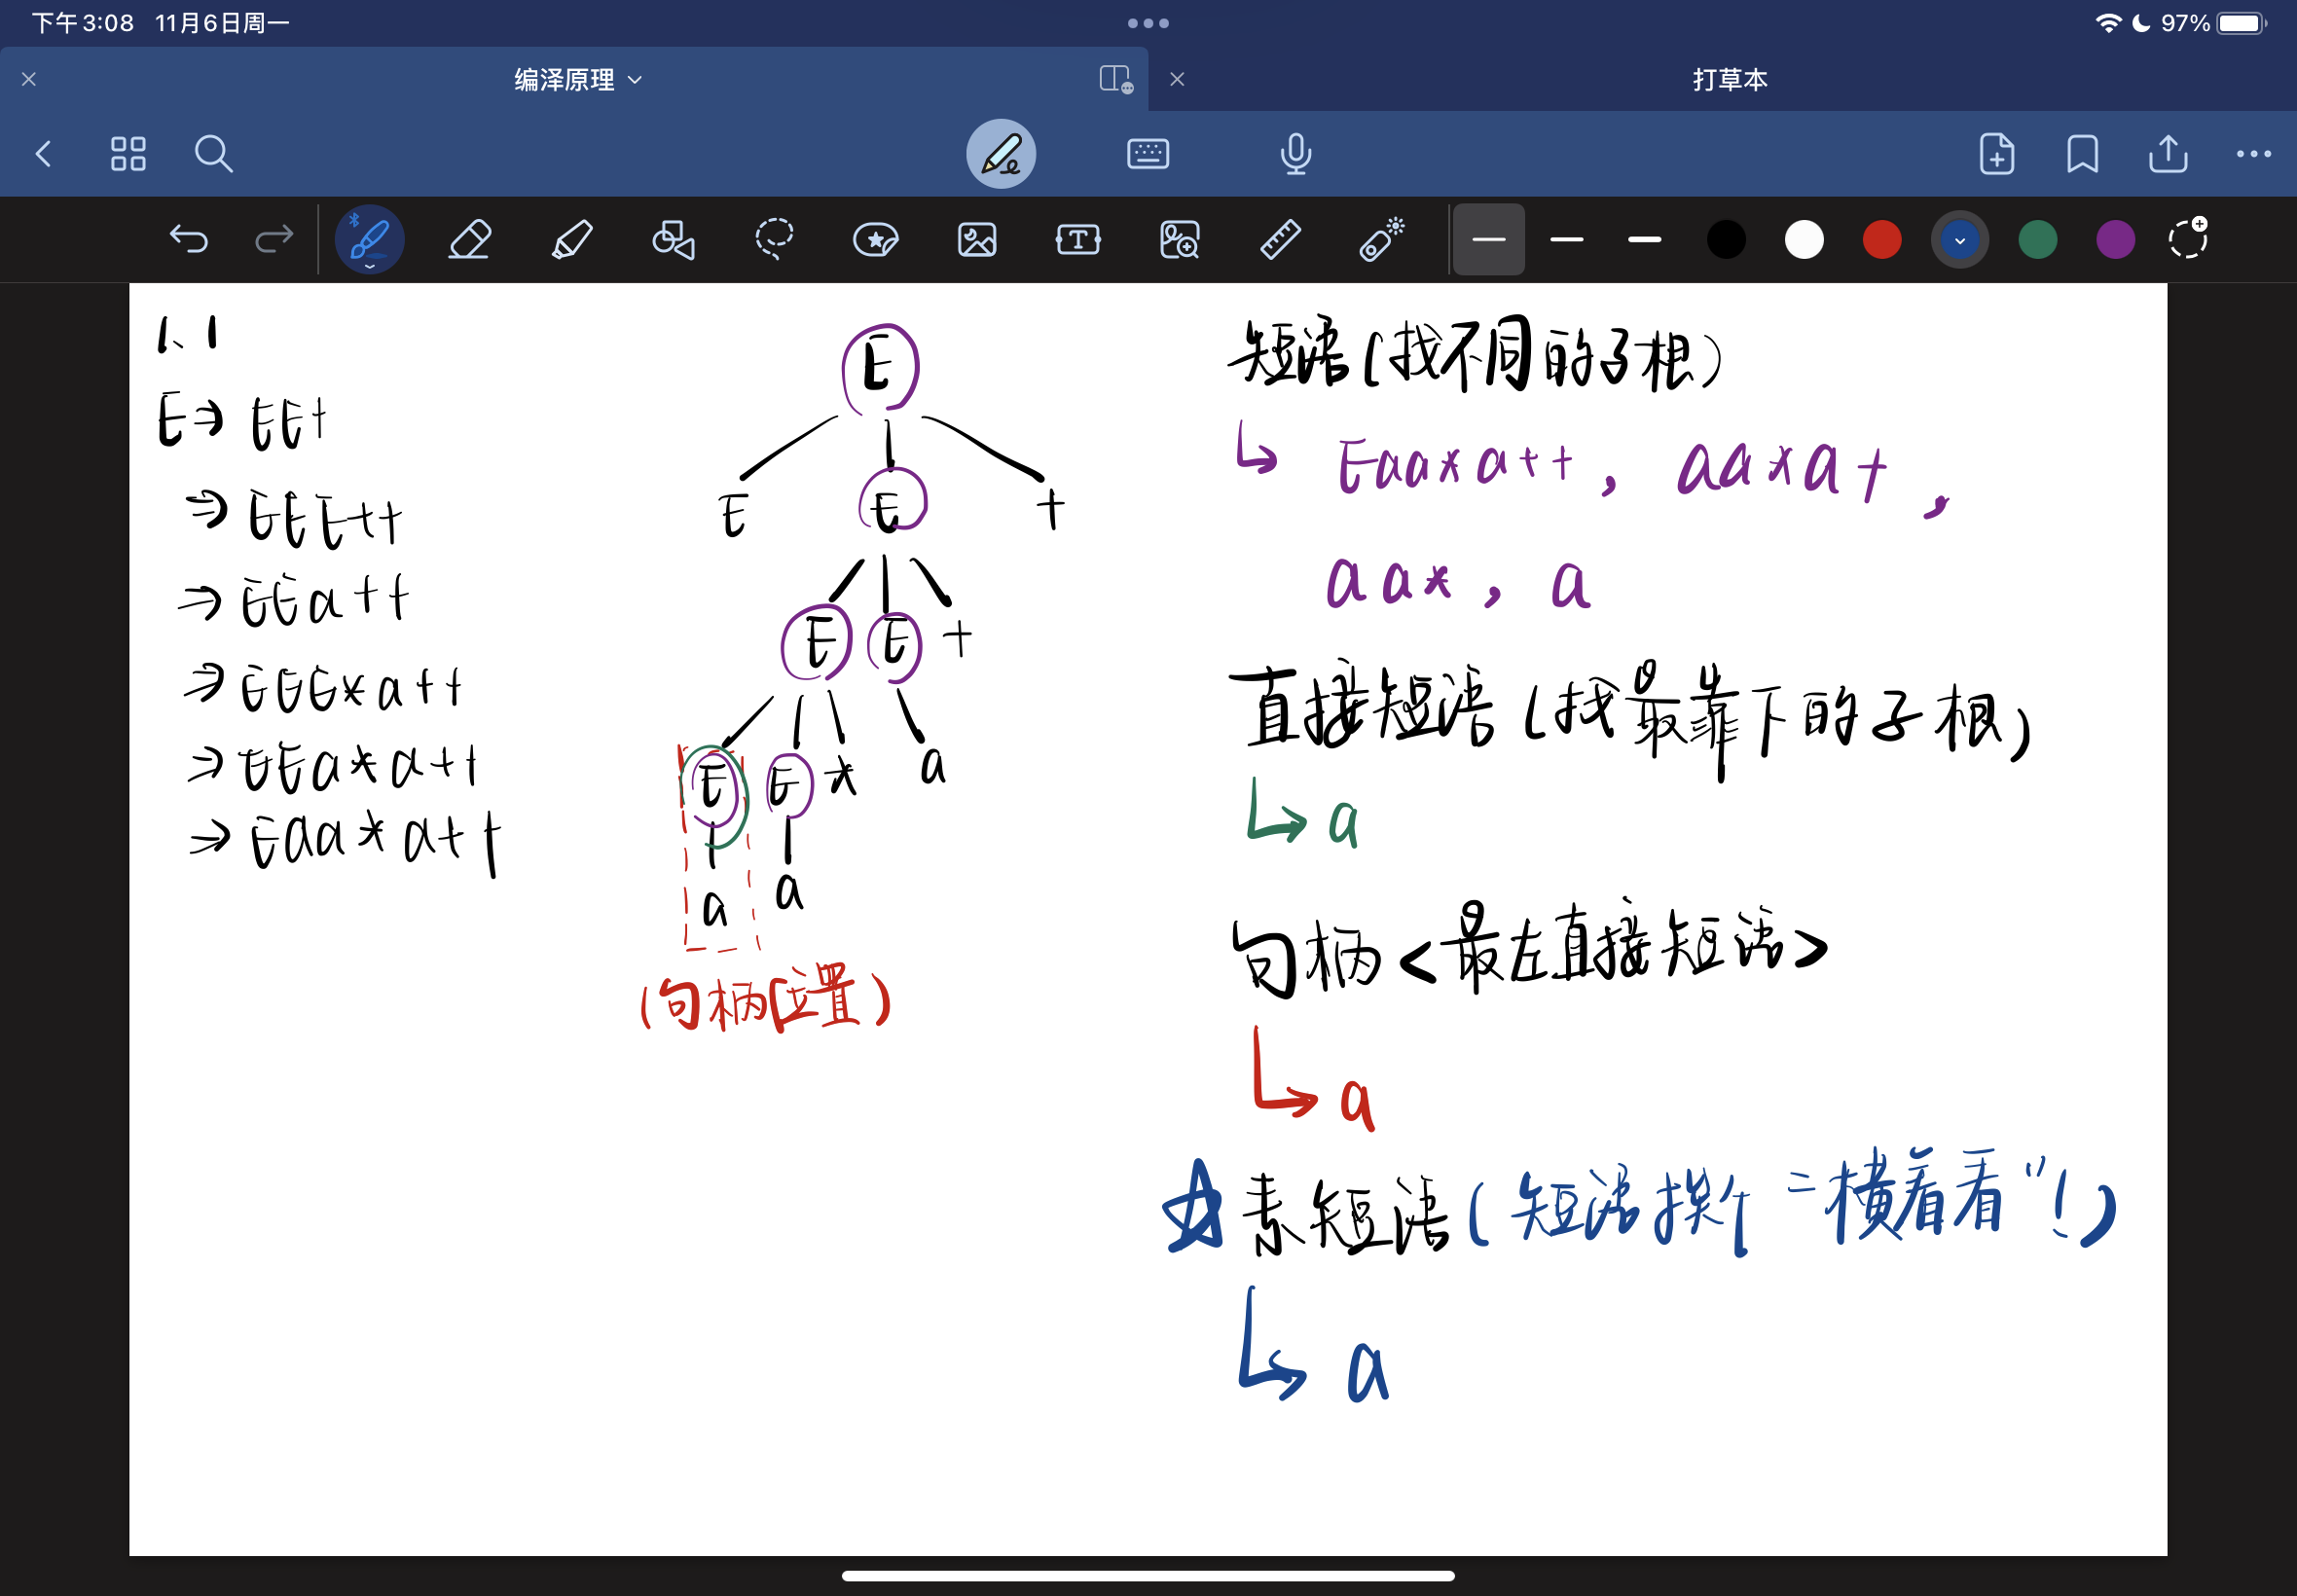 下午3:08 11月6日周一
97%
编泽原理
打草本
1、1
E→ EE+
⇒ EEE++
⇒ EEa++
⇒ EEE*a++
⇒ EEa*a++
⇒ Eaa*a++
E
E E +
E E +
E E * a
a a
(句柄位置)
短语(找不同的子根)
Eaa*a++, aa*a+,
aa*, a
直接短语(找最靠下的子根)
a
句柄<最左直接短语>
a
素短语(短语拆 "横看看"!)
a